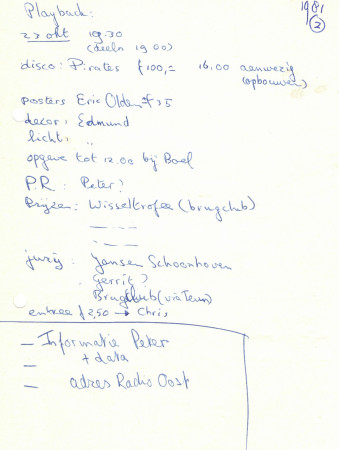 1981
2
Playback:
27 okt 19.30
(deeln 19.00)
disco: Pirates f100,= 16.00 aanwezig
(opbouwen)
posters Eric Olden f35
decor: Edmund
licht: ,,
opgave tot 12.00 bij Boel
P.R. : Peter?
Prijzen: Wisseltrofee (brugclub)
jury: Jansen Schoonhoven
Gerrit?
Brugclub (via Teun)
entree f2,50 → Chris
— Informatie Peter
— + data
— adres Radio Oost